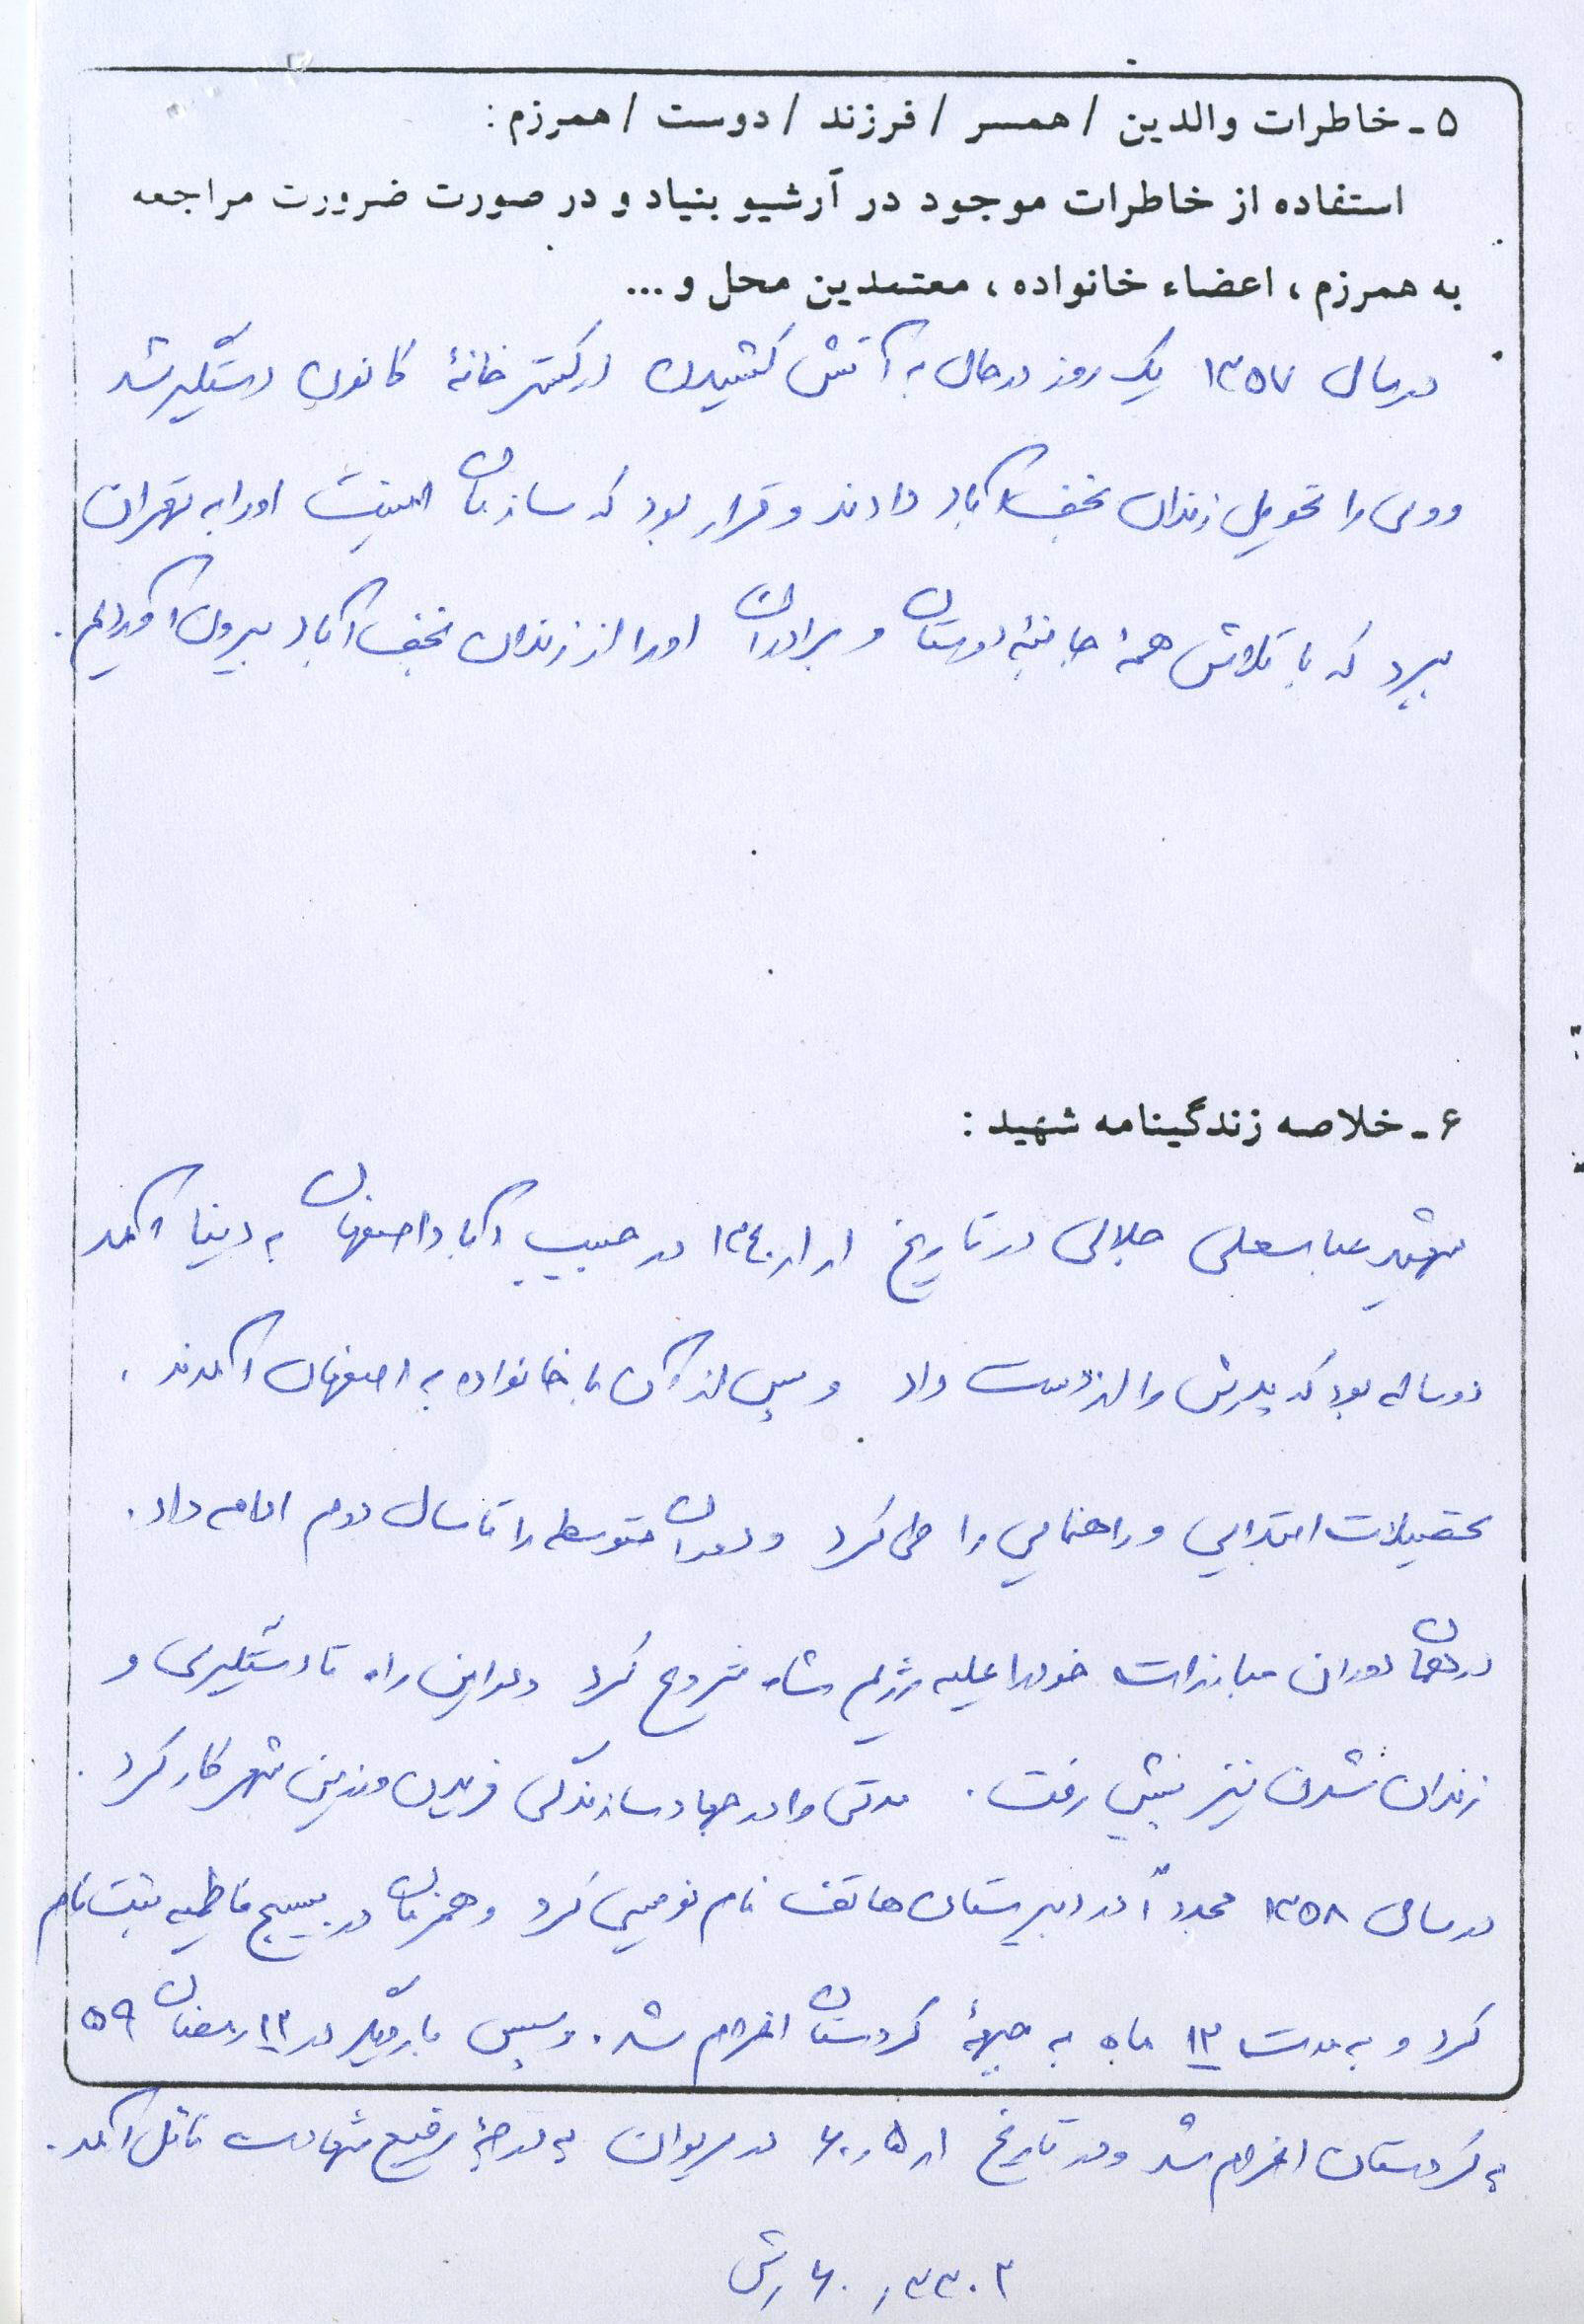 ۵ - خاطرات والدین / همسر / فرزند / دوست / همرزم :
استفاده از خاطرات موجود در آرشیو بنیاد و در صورت ضرورت مراجعه
به همرزم ، اعضاء خانواده ، معتمدین محل و ...
در سال ۱۳۵۷ یک روز در حال به آتش کشیدن دفتر خانهٔ کانون دستگیر شد
و وی را تحویل زندان نجف آباد دادند و قرار بود که سازمان امنیت او را به تهران
ببرد که با تلاش همهٔ جانبهٔ دوستان و برادران او را از زندان نجف آباد بیرون آوردیم .
۶ - خلاصه زندگینامه شهید :
شهید عباسعلی جلالی در تاریخ ۱ر۱ر۱۳۴۰ در حبیب آباد اصفهان به دنیا آمد
دوساله بود که پدرش را از دست داد و پس از آن با خانواده به اصفهان آمدند .
تحصیلات ابتدایی و راهنمایی را طی کرد و دوران متوسطه را تا سال دوم ادامه داد .
در همان دوران مبارزات خود را علیه رژیم شاه شروع کرد و در این راه تا دستگیری و
زندان شدن نیز پیش رفت . مدتی را در جهاد سازندگی فریدن و زرین شهر کار کرد .
در سال ۱۳۵۸ مجدداً در دبیرستان هاتف نام نویسی کرد و همزمان در بسیج فاطمیه ثبت نام
کرد و به مدت ۱۳ ماه به جبههٔ کردستان اعزام شد . و سپس بار دیگر در ۱۱ رمضان ۵۹
به کردستان اعزام شد و در تاریخ ۱ر۵ر۶۰ در مریوان به درجهٔ رفیع شهادت نائل آمد .
۳۳۰۲ر۶۰رش